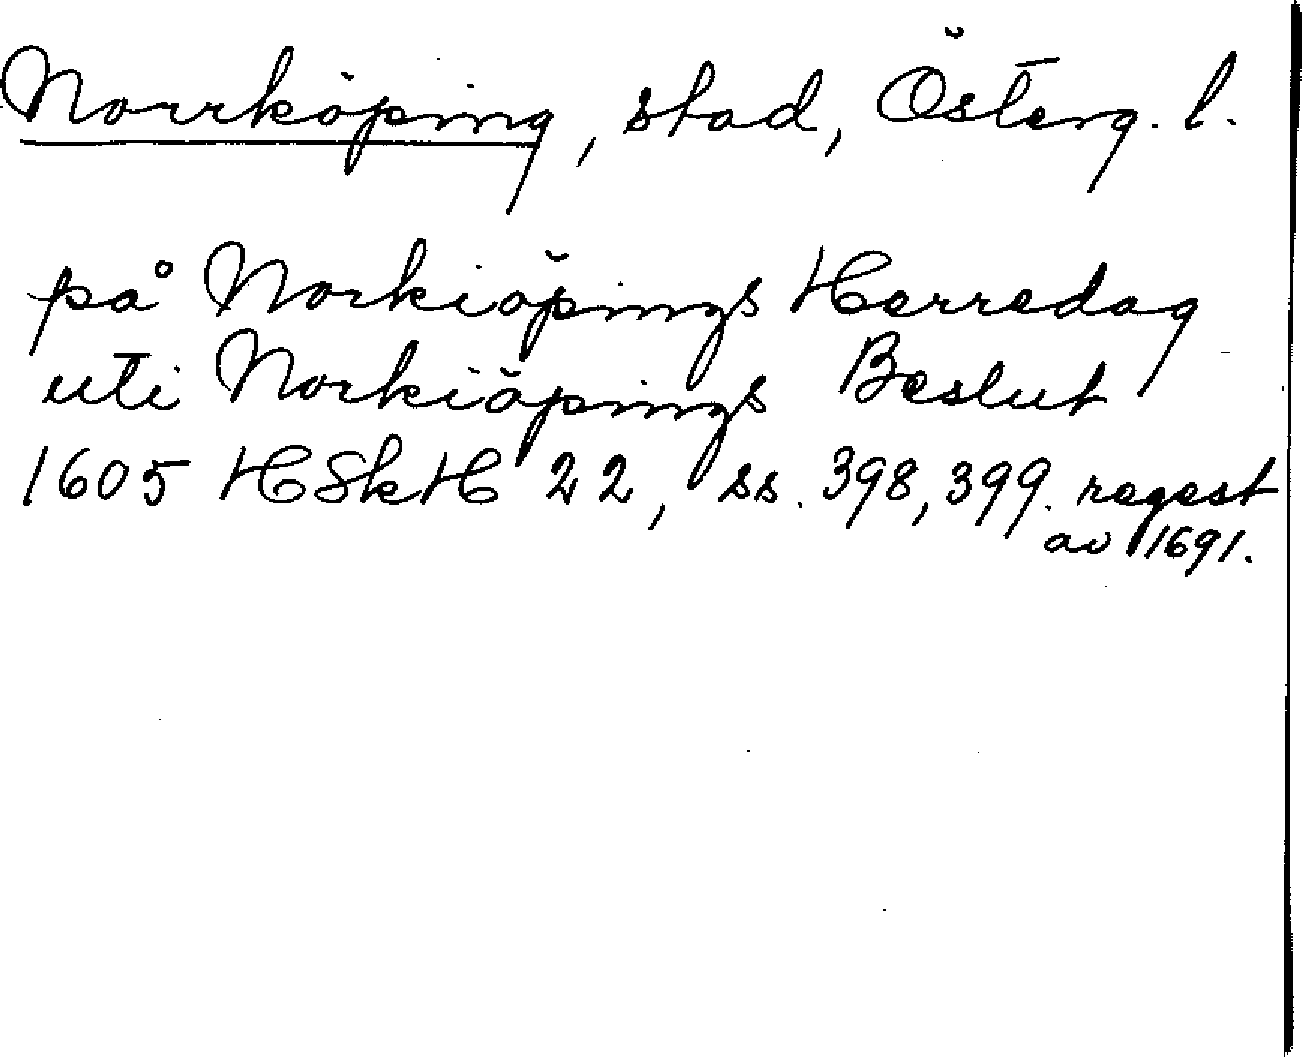 Norrköping, stad, Österg. l.
på Norkiöpings Herredag
uti Norkiöpings Beslut
1605 HSkH 22, ss. 398, 399. regest
av 1691.